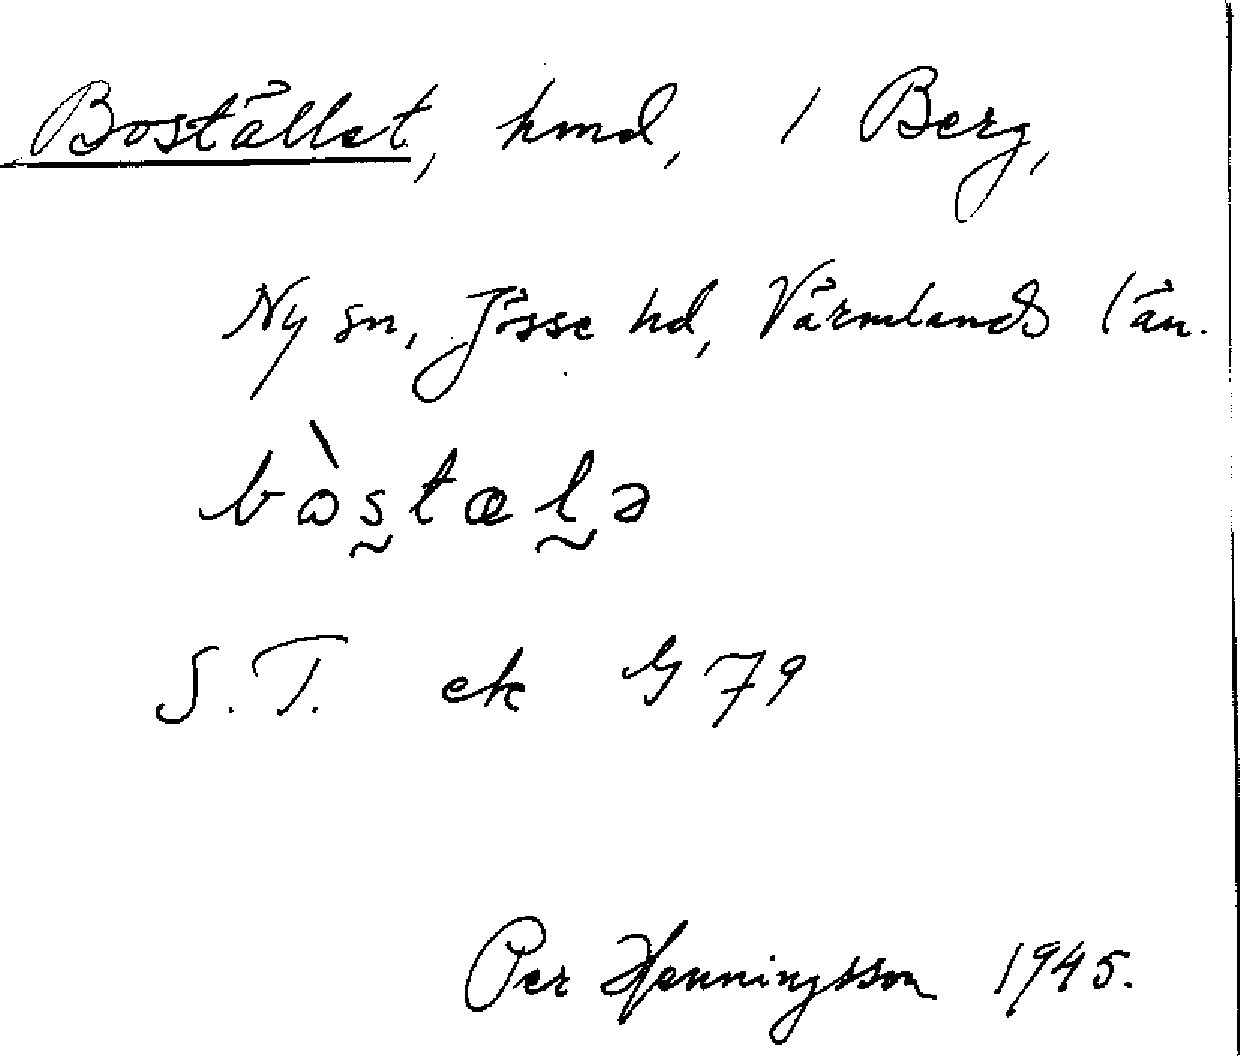 Bostället, hmd, i Berg,
Ny sn, Jösse hd, Värmlands län.
bòs̰tæl̰ə
S.T. ek G 79
Per Henningsson 1945.